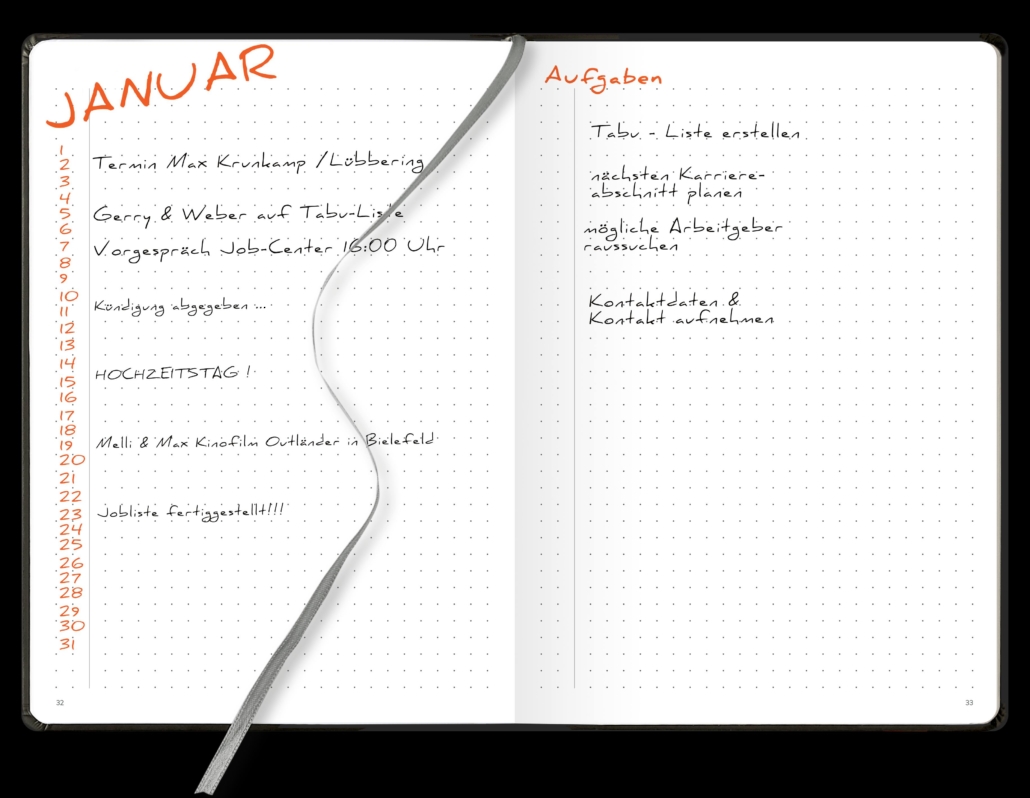 JANUAR
1
2 Termin Max Krunkamp / Lübbering
3
4
5 Gerry & Weber auf Tabu-Liste
6
7 Vorgespräch Job-Center 16:00 Uhr
8
9
10
11 Kündigung abgegeben ...
12
13
14
15 HOCHZEITSTAG !
16
17
18
19 Melli & Max Kinofilm Outländer in Bielefeld
20
21
22
23 Jobliste fertiggestellt!!!
24
25
26
27
28
29
30
31
32
Aufgaben
Tabu - Liste erstellen
nächsten Karriere-
abschnitt planen
mögliche Arbeitgeber
raussuchen
Kontaktdaten &
Kontakt aufnehmen
33